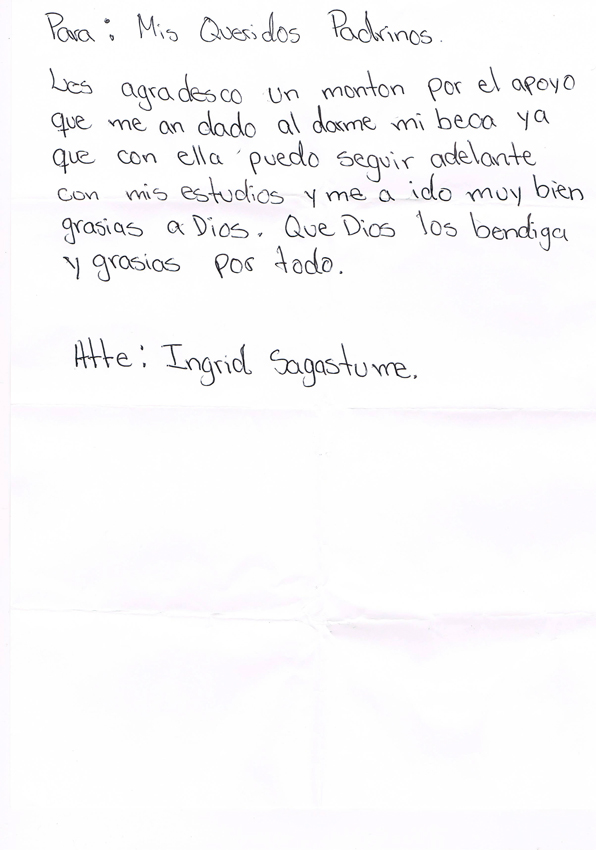 Para: Mis Queridos Padrinos.
Les agradesco un monton por el apoyo
que me an dado al darme mi beca ya
que con ella puedo seguir adelante
con mis estudios y me a ido muy bien
grasias a Dios. Que Dios los bendiga
y grasias por todo.
Atte: Ingrid Sagastume.